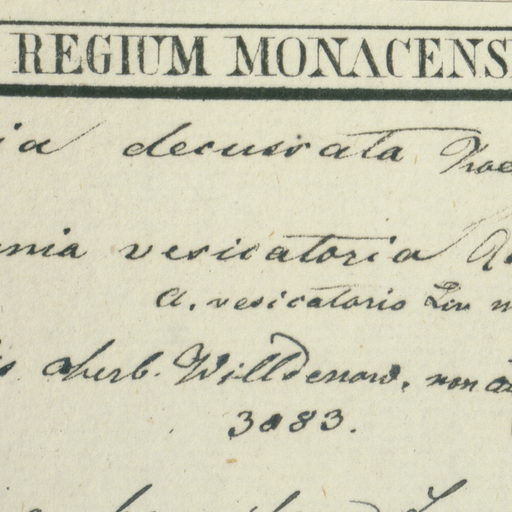 REGIUM MONACENS
ia decussata Troe
nia vesicatoria
A. vesicatorio Lin
is Herb. Willdenow. non
3083.